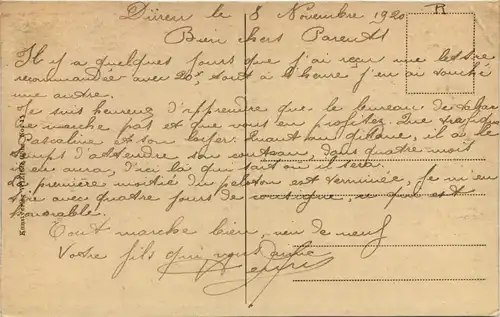 Düren le 8 Novembre 1920
Bien chers Parents
Il y a quelques jours que j'ai reçu une lettre
recommandée avec 20f tout à l'heure j'en ai touché
une autre.
Je suis heureux d'apprendre que le bureau de tabac
ne marche pas et que vous en profitez. Que
Pascaline et son Quant au il a le
temps d'attendre son dans quatre mois
il aura, d'ici là qui sait où il sera.
La première moitié du peloton est terminée, je m'en
tire avec quatre jours de consigne, ce qui est
honorable.
Tout marche bien, rien de neuf
Votre fils qui vous aime